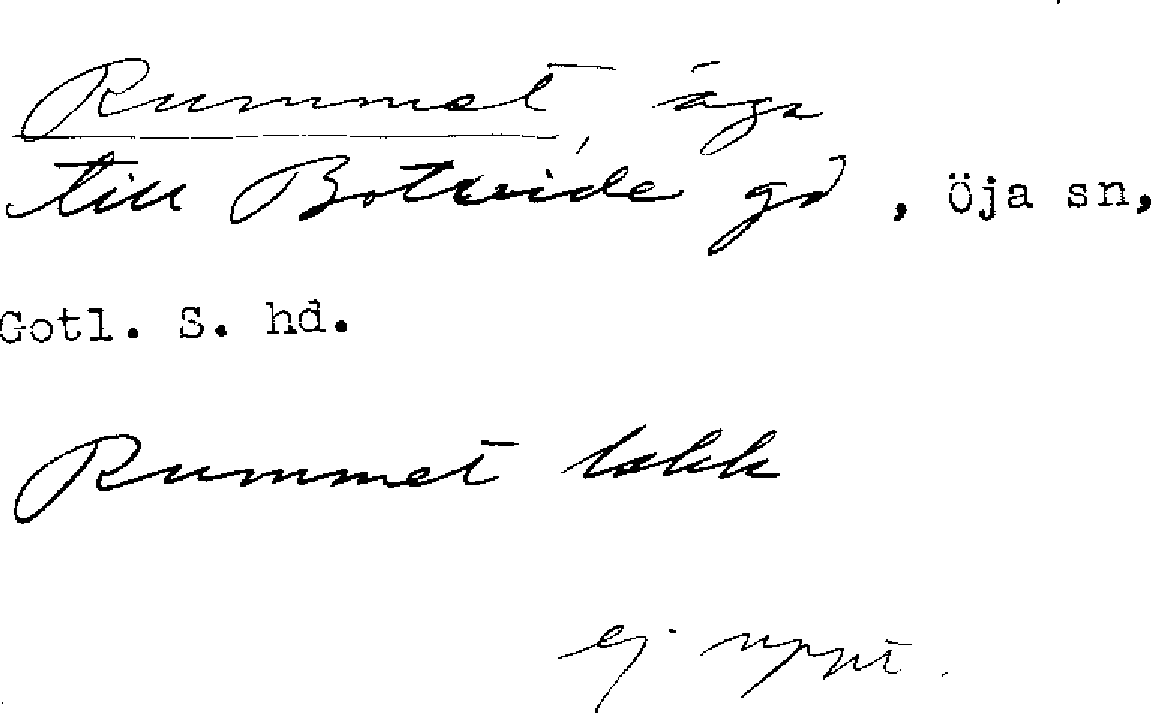 Rummet, äga
till Botvide gd, Öja sn,
Gotl. S. hd.
Rummet
ej uppt.